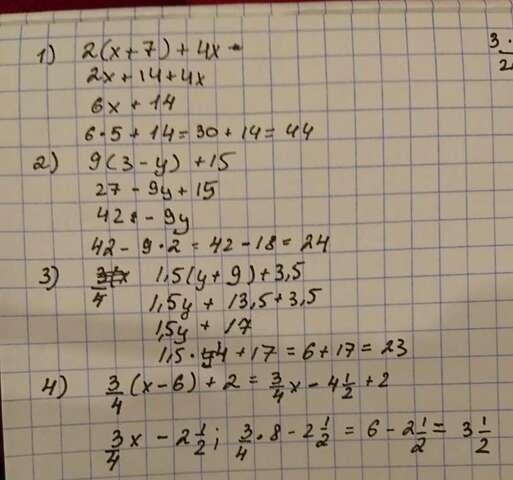 1) 2(x+7)+4x-
2x+14+4x
6x+14
6·5+14=30+14=44
2) 9(3-y)+15
27-9y+15
42-9y
42-9·2=42-18=24
3) 1,5(y+9)+3,5
1,5y+13,5+3,5
1,5y+17
1,5·4+17=6+17=23
4) 3/4(x-6)+2=3/4x-4 1/2+2
3/4x-2 1/2; 3/4·8-2 1/2=6-2 1/2=3 1/2